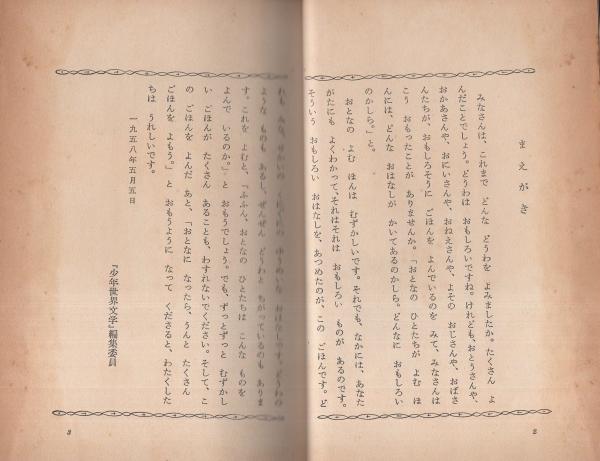 まえがき
みなさんは、これまで どんな どうわを よみましたか。たくさん よ
んだことでしょう。どうわは おもしろいですね。けれども、おとうさんや、
おかあさんや、おにいさんや、おねえさんや、よその おじさんや、おばさ
んたちが、おもしろそうに ごほんを よんでいるのを みて、みなさんは
こう おもったことが ありませんか。「おとなの ひとたちが よむ ほ
んには、どんな おはなしが かいてあるのかしら。どんなに おもしろい
のかしら。」と。
おとなの よむ ほんは むずかしいです。それでも、なかには、あなた
がたにも よくわかって、それはそれは おもしろい ものが あるのです。
そういう おもしろい おはなしを、あつめたのが、この ごほんです。ど
2
れも みな、せかいの ゆうめいな おはなしです。どうわの
ような ものも あるし、ぜんぜん どうわと ちがっているのも ありま
す。これを よむと、「ふふん、おとなの ひとたちは こんな ものを
よんで いるのか。」と おもうでしょう。でも、ずっとずっと むずかし
い ごほんが たくさん あることも、わすれないでください。そして、こ
の ごほんを よんだ あと、「おとなに なったら、うんと たくさん
ごほんを よもう。」と おもうように なって くださると、わたくした
ちは うれしいです。
一九五八年五月五日
『少年世界文学』編集委員
3